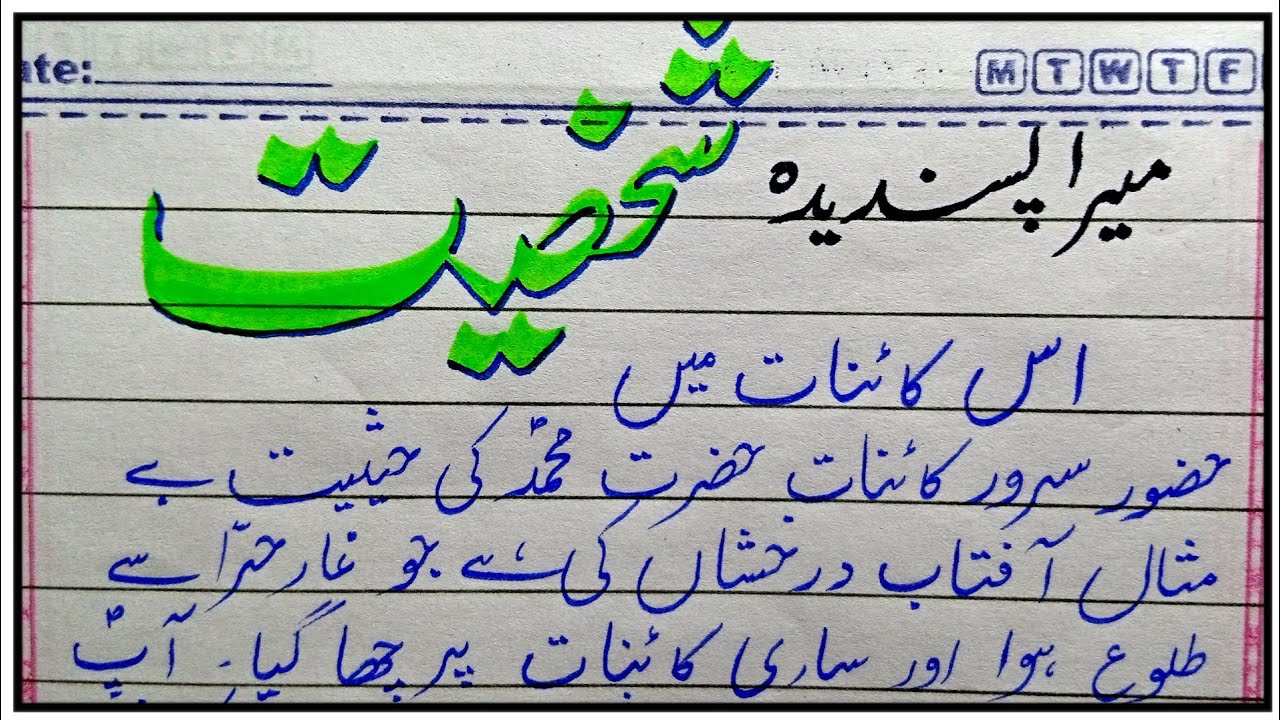 ate:
M T W T F
میرا پسندیدہ شخصیت
اس کائنات میں
حضور سرور کائنات حضرت محمدؐ کی حیثیت بے
مثال آفتاب درخشاں کی ہے جو غار حرا سے
طلوع ہوا اور ساری کائنات پر چھا گیا۔ آپؐ